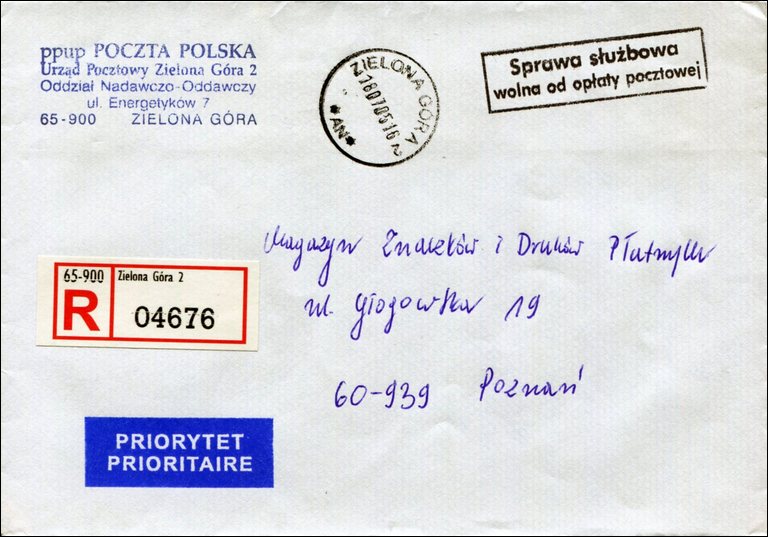 ppup POCZTA POLSKA
Urząd Pocztowy Zielona Góra 2
Oddział Nadawczo-Oddawczy
ul. Energetyków 7
65-900 ZIELONA GÓRA
ZIELONA GÓRA 2
18070516
*AN*
Sprawa służbowa
wolna od opłaty pocztowej
Magazyn Znaczków i Druków Płatnych
ul. Głogowska 19
60-939 Poznań
65-900 Zielona Góra 2
R 04676
PRIORYTET
PRIORITAIRE